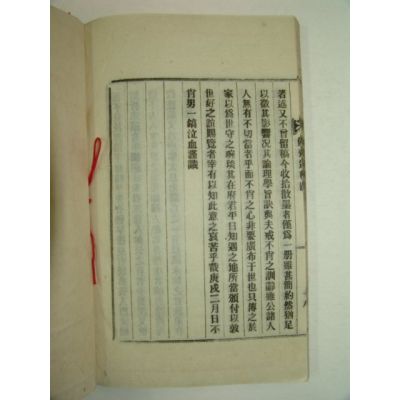 著述又不曾留稿今收拾散墨者僅爲一册雖甚簡約然猶足
以徵其影響況其論理學旨訣與夫戒不肖之訓辭雖公諸人
人無有不切當者乎而不肖之心非要廣布于世也只傳之於
家以爲世守之琬琰其在府君平日知遇之地所當頒付以敦
世好之誼賜覽者宰有以知此意之哀苦乎哉庚戌二月日不
肖男一鎬泣血謹識